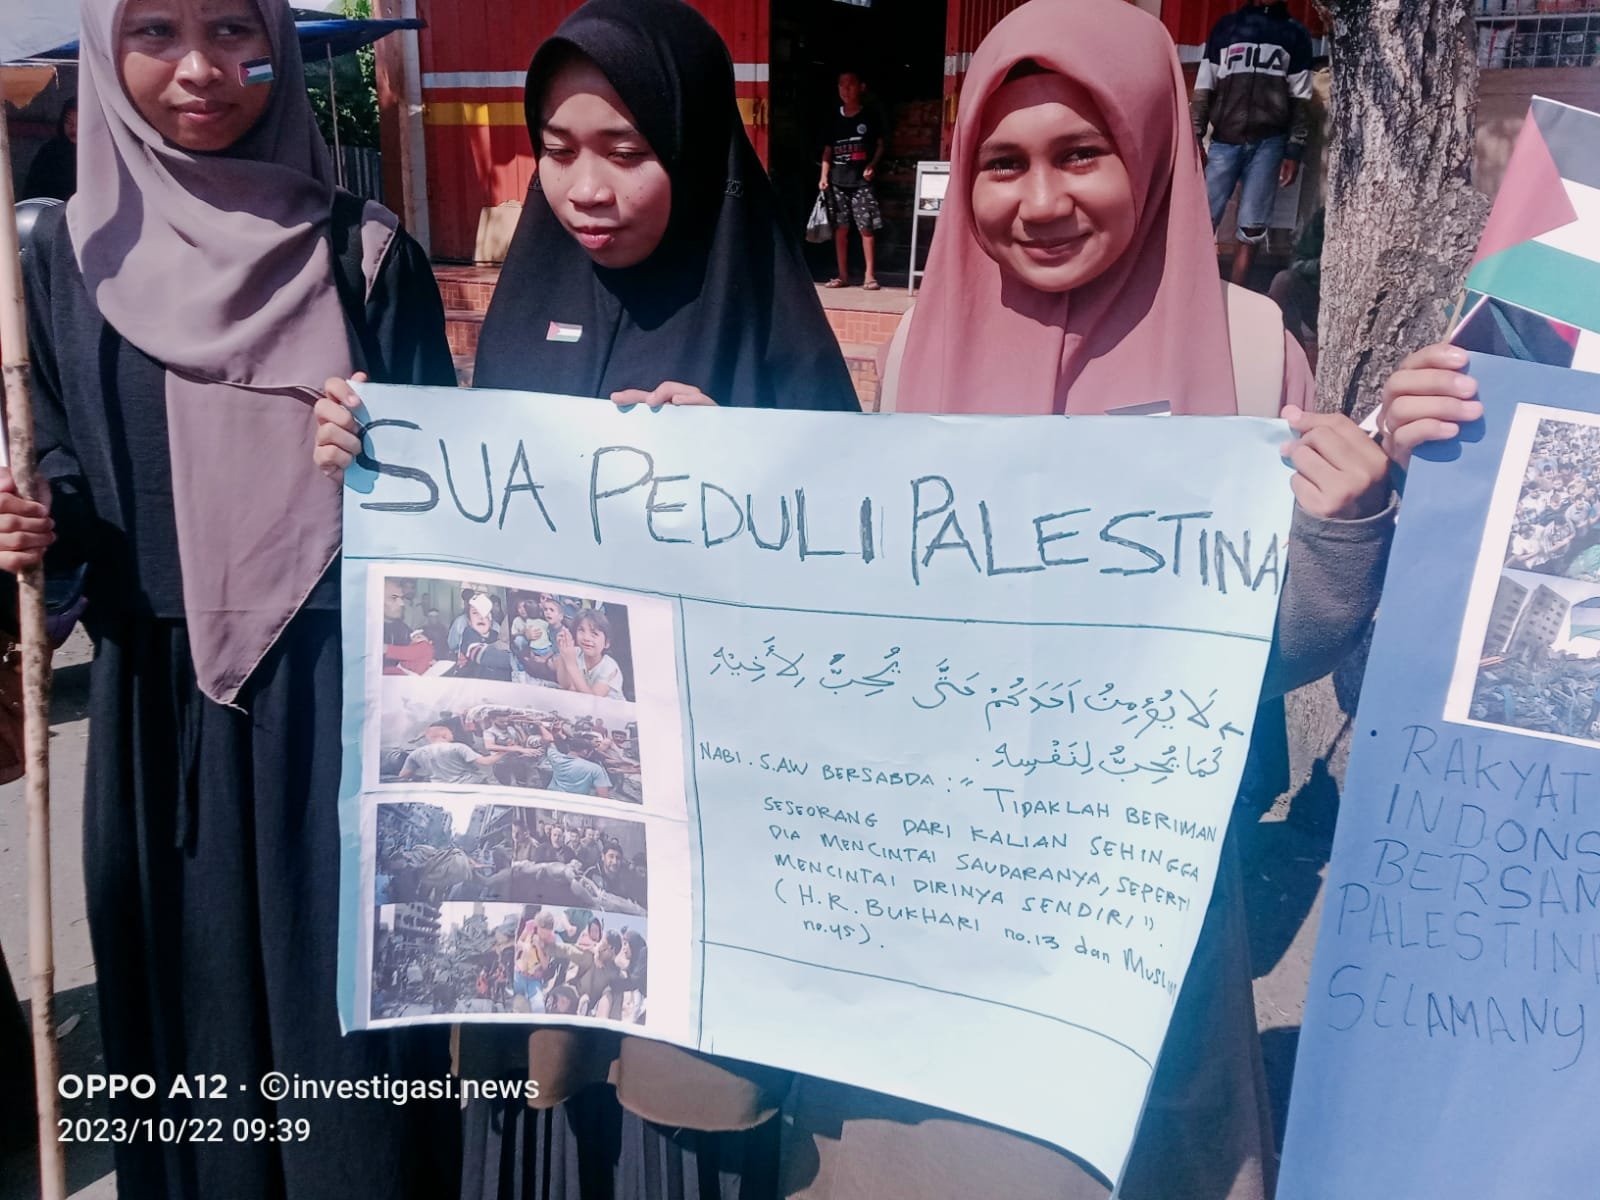 FILA
SUA PEDULI PALESTINA
لَا يُؤْمِنُ اَحَدَكُمْ حَتَّى يُحِبَّ لِأَخِيْهِ
كَمَا يُحِبُّ لِنَفْسِهِ .
NABI . S.AW BERSABDA : " TIDAKLAH BERIMAN
SESEORANG DARI KALIAN SEHINGGA
DIA MENCINTAI SAUDARANYA, SEPERTI
MENCINTAI DIRINYA SENDIRI ".
(H.R. BUKHARI no.13 dan MUSLIM
no.45).
RAKYAT
INDONS
BERSAM
PALESTIN
SELAMANY
OPPO A12 · ©investigasi.news
2023/10/22 09:39